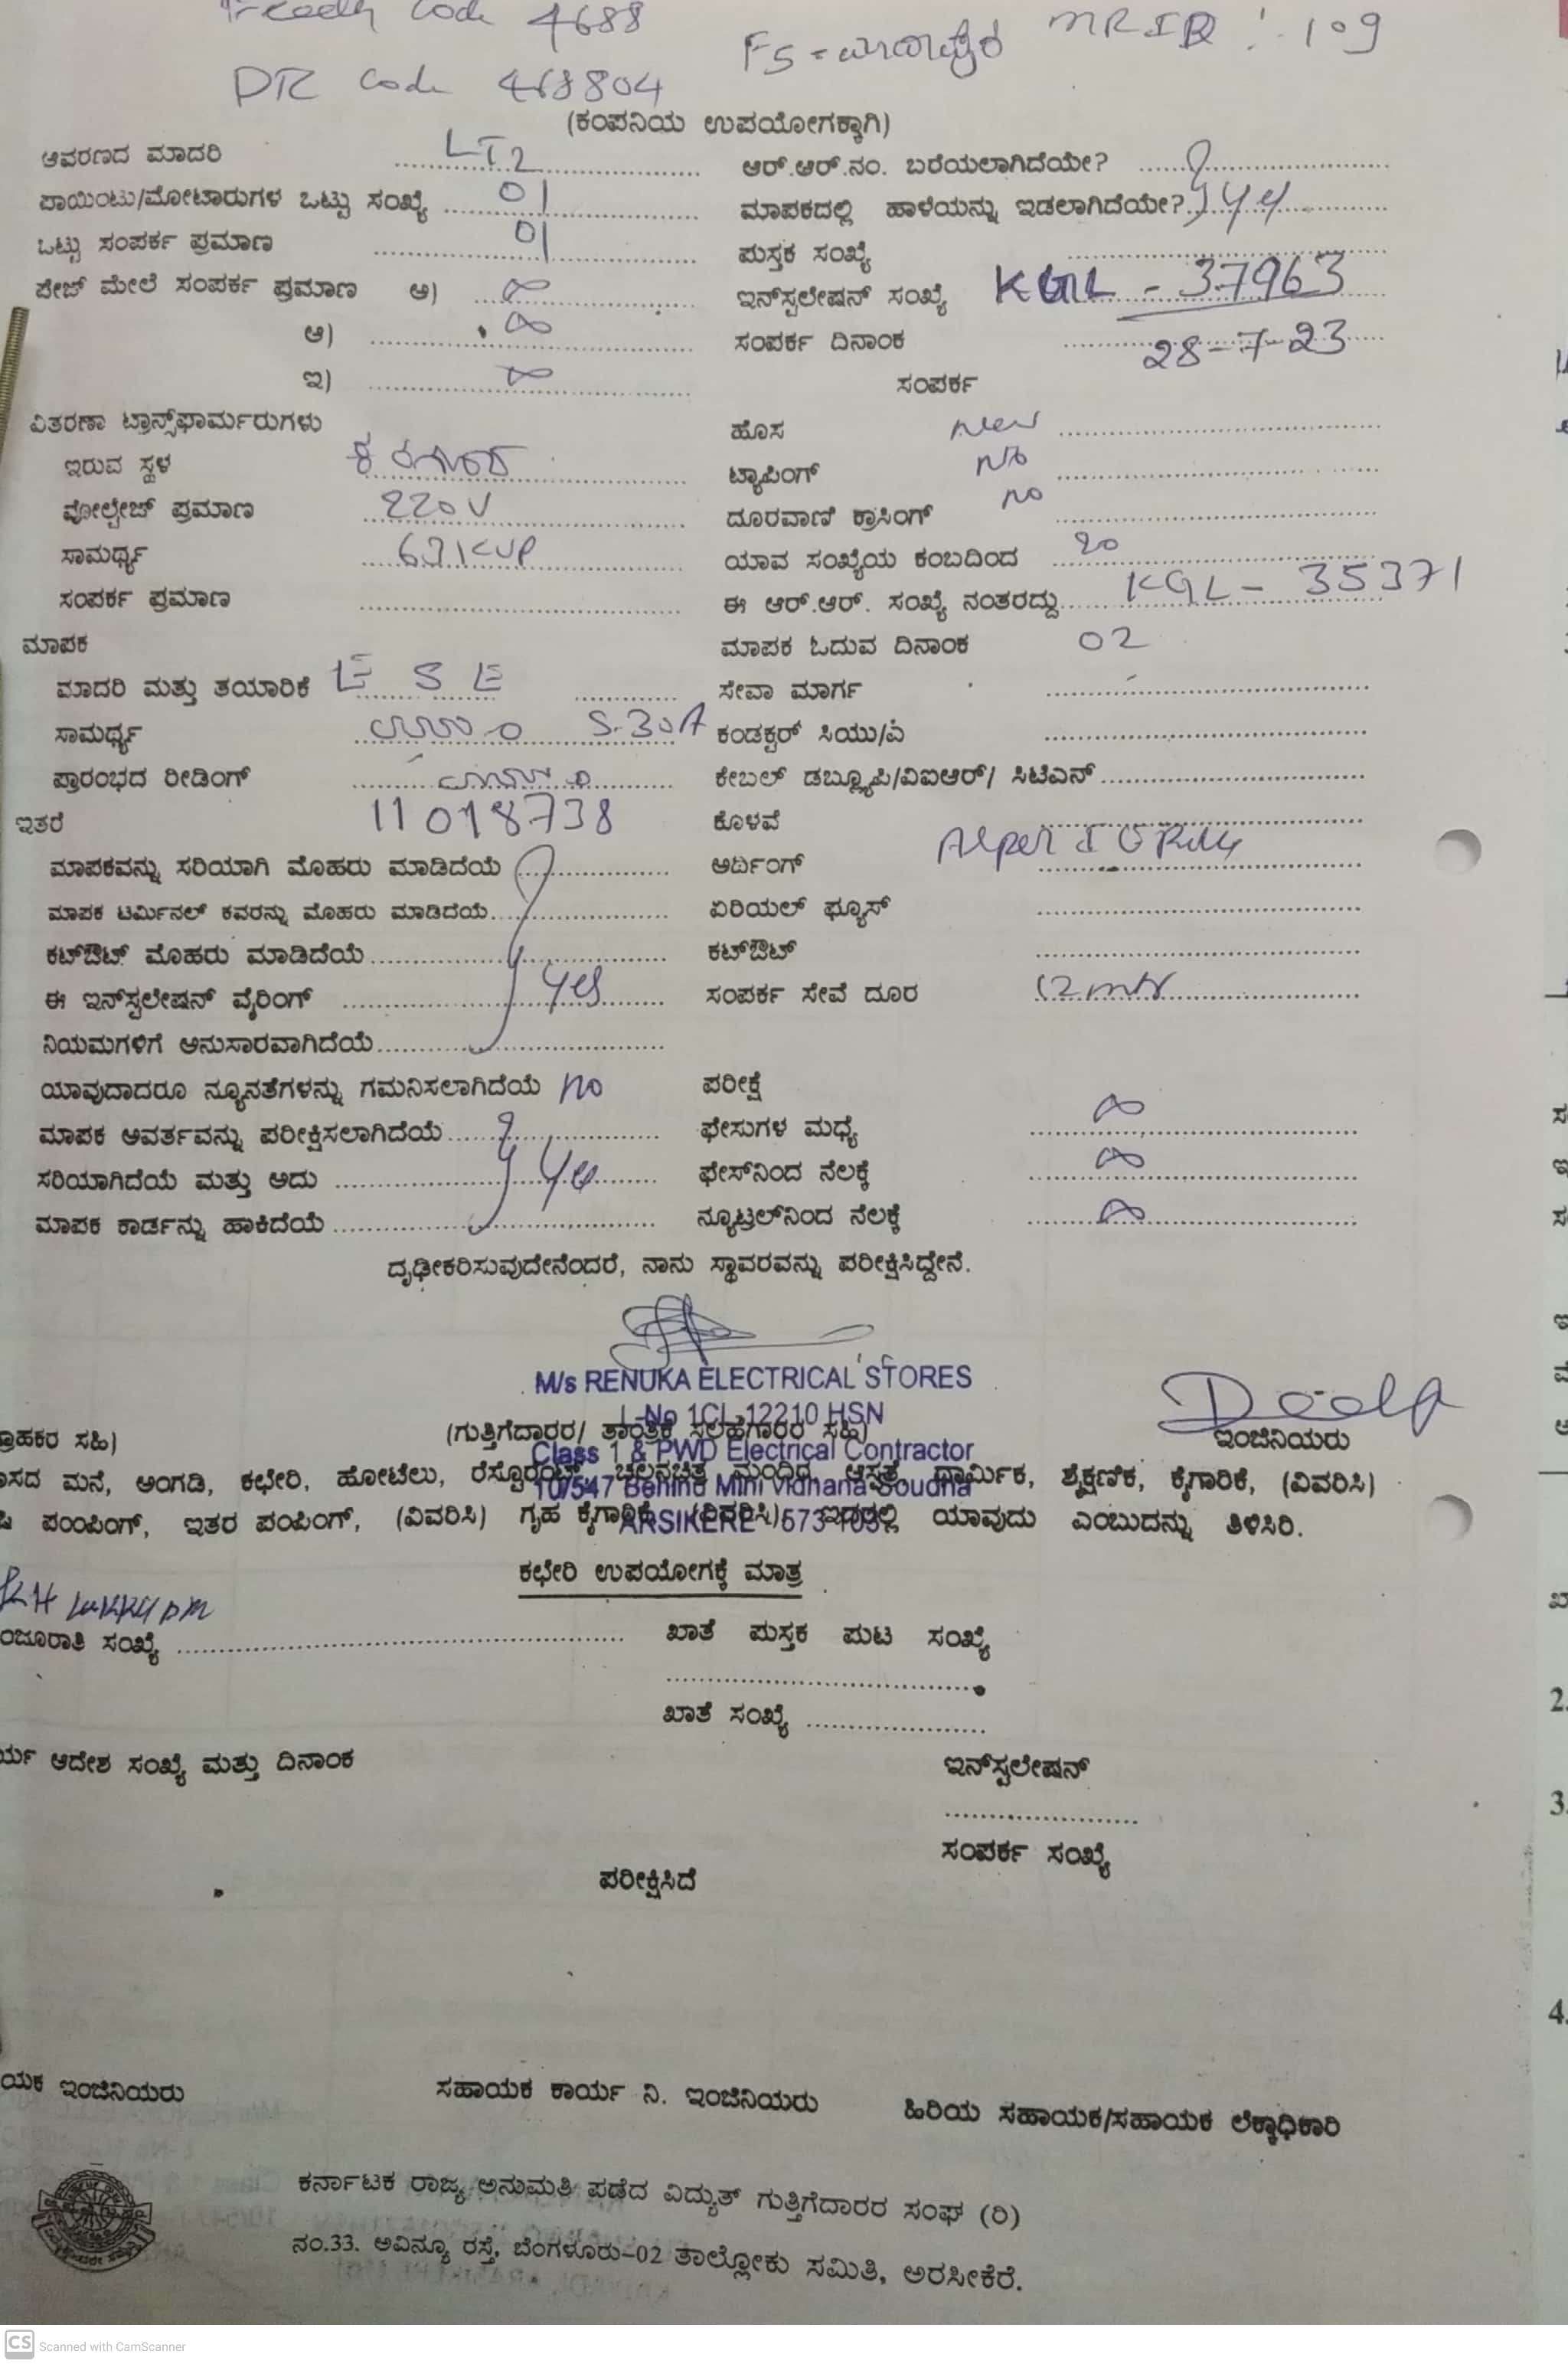 code 4688
MRID : 109
DTC code 468804
(ಕಂಪನಿಯ ಉಪಯೋಗಕ್ಕಾಗಿ)
ಆವರಣದ ಮಾದರಿ LT2 ಆರ್.ಆರ್.ನಂ. ಬರೆಯಲಾಗಿದೆಯೇ?
ಪಾಯಿಂಟು/ಮೋಟಾರುಗಳ ಒಟ್ಟು ಸಂಖ್ಯೆ 01 ಮಾಪಕದಲ್ಲಿ ಹಾಳೆಯನ್ನು ಇಡಲಾಗಿದೆಯೇ?
ಒಟ್ಟು ಸಂಪರ್ಕ ಪ್ರಮಾಣ 01 ಪುಸ್ತಕ ಸಂಖ್ಯೆ
ಪೇಜ್ ಮೇಲೆ ಸಂಪರ್ಕ ಪ್ರಮಾಣ ಅ) ಇನ್‌ಸ್ಟಲೇಷನ್ ಸಂಖ್ಯೆ KGL - 37963
ಆ) ಸಂಪರ್ಕ ದಿನಾಂಕ 28-7-23
ಇ) ಸಂಪರ್ಕ
ವಿತರಣಾ ಟ್ರಾನ್ಸ್‌ಫಾರ್ಮರುಗಳು ಹೊಸ New
ಇರುವ ಸ್ಥಳ ಟ್ಯಾಪಿಂಗ್ No
ವೋಲ್ಟೇಜ್ ಪ್ರಮಾಣ 220V ದೂರವಾಣಿ ಕ್ರಾಸಿಂಗ್ no
ಸಾಮರ್ಥ್ಯ ಯಾವ ಸಂಖ್ಯೆಯ ಕಂಬದಿಂದ 20
ಸಂಪರ್ಕ ಪ್ರಮಾಣ ಈ ಆರ್.ಆರ್. ಸಂಖ್ಯೆ ನಂತರದ್ದು KGL - 35371
ಮಾಪಕ ಮಾಪಕ ಓದುವ ದಿನಾಂಕ 02
ಮಾದರಿ ಮತ್ತು ತಯಾರಿಕೆ ಸೇವಾ ಮಾರ್ಗ
ಸಾಮರ್ಥ್ಯ 5-30A ಕಂಡಕ್ಟರ್ ಸಿಯು/ಎ
ಪ್ರಾರಂಭದ ರೀಡಿಂಗ್ ಕೇಬಲ್ ಡಬ್ಲ್ಯೂಪಿ/ವಿಐಆರ್/ ಸಿಟಿಎನ್
ಇತರೆ 11018738 ಕೊಳವೆ
ಮಾಪಕವನ್ನು ಸರಿಯಾಗಿ ಮೊಹರು ಮಾಡಿದೆಯೆ ಅರ್ಥಿಂಗ್
ಮಾಪಕ ಟರ್ಮಿನಲ್ ಕವರನ್ನು ಮೊಹರು ಮಾಡಿದೆಯೆ ಏರಿಯಲ್ ಫ್ಯೂಸ್
ಕಟ್‌ಔಟ್ ಮೊಹರು ಮಾಡಿದೆಯೆ ಕಟ್‌ಔಟ್
ಈ ಇನ್‌ಸ್ಟಲೇಷನ್ ವೈರಿಂಗ್ yes ಸಂಪರ್ಕ ಸೇವೆ ದೂರ 12 mtr
ನಿಯಮಗಳಿಗೆ ಅನುಸಾರವಾಗಿದೆಯೆ
ಯಾವುದಾದರೂ ನ್ಯೂನತೆಗಳನ್ನು ಗಮನಿಸಲಾಗಿದೆಯೆ no ಪರೀಕ್ಷೆ
ಮಾಪಕ ಆವರ್ತವನ್ನು ಪರೀಕ್ಷಿಸಲಾಗಿದೆಯೆ ಫೇಸುಗಳ ಮಧ್ಯೆ
ಸರಿಯಾಗಿದೆಯೆ ಮತ್ತು ಅದು ಫೇಸ್‌ನಿಂದ ನೆಲಕ್ಕೆ
ಮಾಪಕ ಕಾರ್ಡನ್ನು ಹಾಕಿದೆಯೆ ನ್ಯೂಟ್ರಲ್‌ನಿಂದ ನೆಲಕ್ಕೆ
ದೃಢೀಕರಿಸುವುದೇನೆಂದರೆ, ನಾನು ಸ್ಥಾವರವನ್ನು ಪರೀಕ್ಷಿಸಿದ್ದೇನೆ.
M/s RENUKA ELECTRICAL STORES
L-No 1CL-12210 HSN
ಸಹಿ) (ಗುತ್ತಿಗೆದಾರರ/ ತಾಂತ್ರಿಕ ಸಲಹೆಗಾರರ ಸಹಿ) ಇಂಜಿನಿಯರು
Class 1 & PWD Electrical Contractor
ಮನೆ, ಅಂಗಡಿ, ಕಛೇರಿ, ಹೋಟೆಲು, ರೆಸ್ಟೊರೆಂಟ್, ಚಲನಚಿತ್ರ ಮಂದಿರ, ಆಸ್ಪತ್ರೆ, ಧಾರ್ಮಿಕ, ಶೈಕ್ಷಣಿಕ, ಕೈಗಾರಿಕೆ, (ವಿವರಿಸಿ)
10/547 Behind Mini Vidhana Soudha
ಪಂಪಿಂಗ್, ಇತರ ಪಂಪಿಂಗ್, (ವಿವರಿಸಿ) ಗೃಹ ಕೈಗಾರಿಕೆ (ವಿವರಿಸಿ) ಇದರಲ್ಲಿ ಯಾವುದು ಎಂಬುದನ್ನು ತಿಳಿಸಿರಿ.
ARSIKERE
ಕಛೇರಿ ಉಪಯೋಗಕ್ಕೆ ಮಾತ್ರ
ಸಂಖ್ಯೆ ಖಾತೆ ಪುಸ್ತಕ ಪುಟ ಸಂಖ್ಯೆ
ಖಾತೆ ಸಂಖ್ಯೆ
ಆದೇಶ ಸಂಖ್ಯೆ ಮತ್ತು ದಿನಾಂಕ ಇನ್‌ಸ್ಟಲೇಷನ್
ಸಂಪರ್ಕ ಸಂಖ್ಯೆ
ಪರೀಕ್ಷಿಸಿದೆ
ಇಂಜಿನಿಯರು ಸಹಾಯಕ ಕಾರ್ಯ ನಿ. ಇಂಜಿನಿಯರು ಹಿರಿಯ ಸಹಾಯಕ/ಸಹಾಯಕ ಲೆಕ್ಕಾಧಿಕಾರಿ
ಕರ್ನಾಟಕ ರಾಜ್ಯ ಅನುಮತಿ ಪಡೆದ ವಿದ್ಯುತ್ ಗುತ್ತಿಗೆದಾರರ ಸಂಘ (ರಿ)
ನಂ.33. ಅವಿನ್ಯೂ ರಸ್ತೆ, ಬೆಂಗಳೂರು-02 ತಾಲ್ಲೋಕು ಸಮಿತಿ, ಅರಸೀಕೆರೆ.
2.
3.
4.
CS Scanned with CamScanner